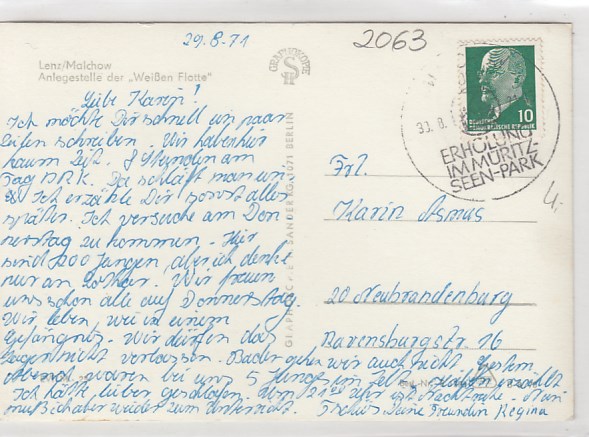 29.8.71
2063
Lenz/Malchow
Anlegestelle der „Weißen Flotte"
Liebe Karin!
Ich möchte Dir schnell ein paar
Zeilen schreiben. Wir haben hier
kaum Zeit. 8 Stunden am
Tag DRK. Da schläft man ein.
Ich erzähle Dir sonst alles
später. Ich versuche am Don
nerstag zu kommen. Hier
sind 200 Jungen, aber ich denke
nur an Lothar. Wir freuen
uns schon alle auf Donnerstag.
Wir leben, wie in einem
Gefängnis. Wir dürfen das
Lager nicht verlassen. Baden gehen wir auch nicht. Gestern
Abend waren bei uns 5 Jungs im
Ich hätte lieber geschlafen. Um 21 00 Uhr ist Nachtruhe. Nun
muß ich aber wieder zum Unterricht. Tschüß Deine Freundin Regina
GRAPHOKOPIE
S
SANDER KG, 1071 BERLIN
10
DEUTSCHE DEMOKRATISCHE REPUBLIK
30.8.
ERHOLUNG
IM MÜRITZ-
SEEN-PARK
Frl.
Karin Asmus
20 Neubrandenburg
Ravensburgstr. 16